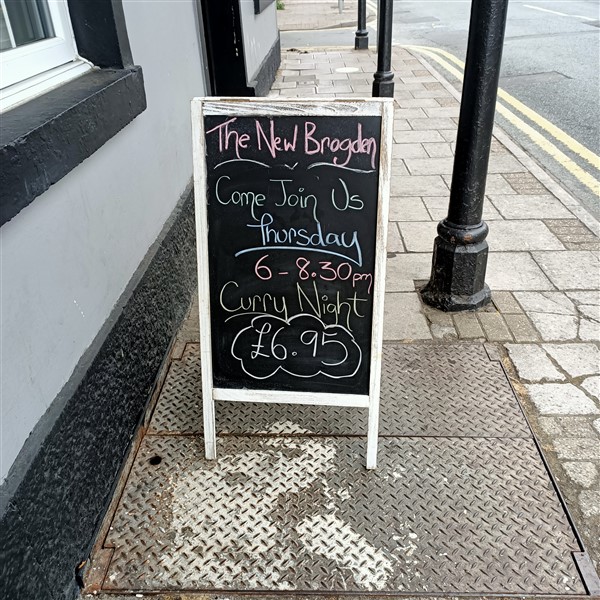 The New Brogden
Come Join Us
Thursday
6 - 8.30pm
Curry Night
£6.95